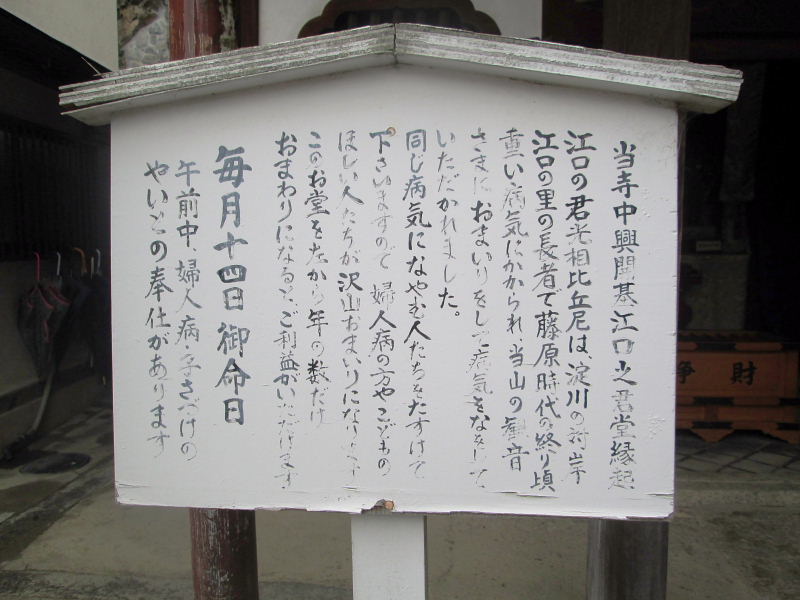 当寺中興開基江口之君堂縁起
江口の君光相比丘尼は、淀川の対岸
江口の里の長者で藤原時代の終り頃
重い病気にかかられ、当山の観音
さまにおまいりをして病気をなおして
いただかれました。
同じ病気になやむ人たちをたすけて
下さいますので婦人病の方やこどもの
ほしい人たちが沢山おまいりになります
このお堂を左から年の数だけ
おまわりになると、ご利益がいただけます
毎月十四日御命日
午前中、婦人病・子さづけの
やいとの奉仕があります
財
浄